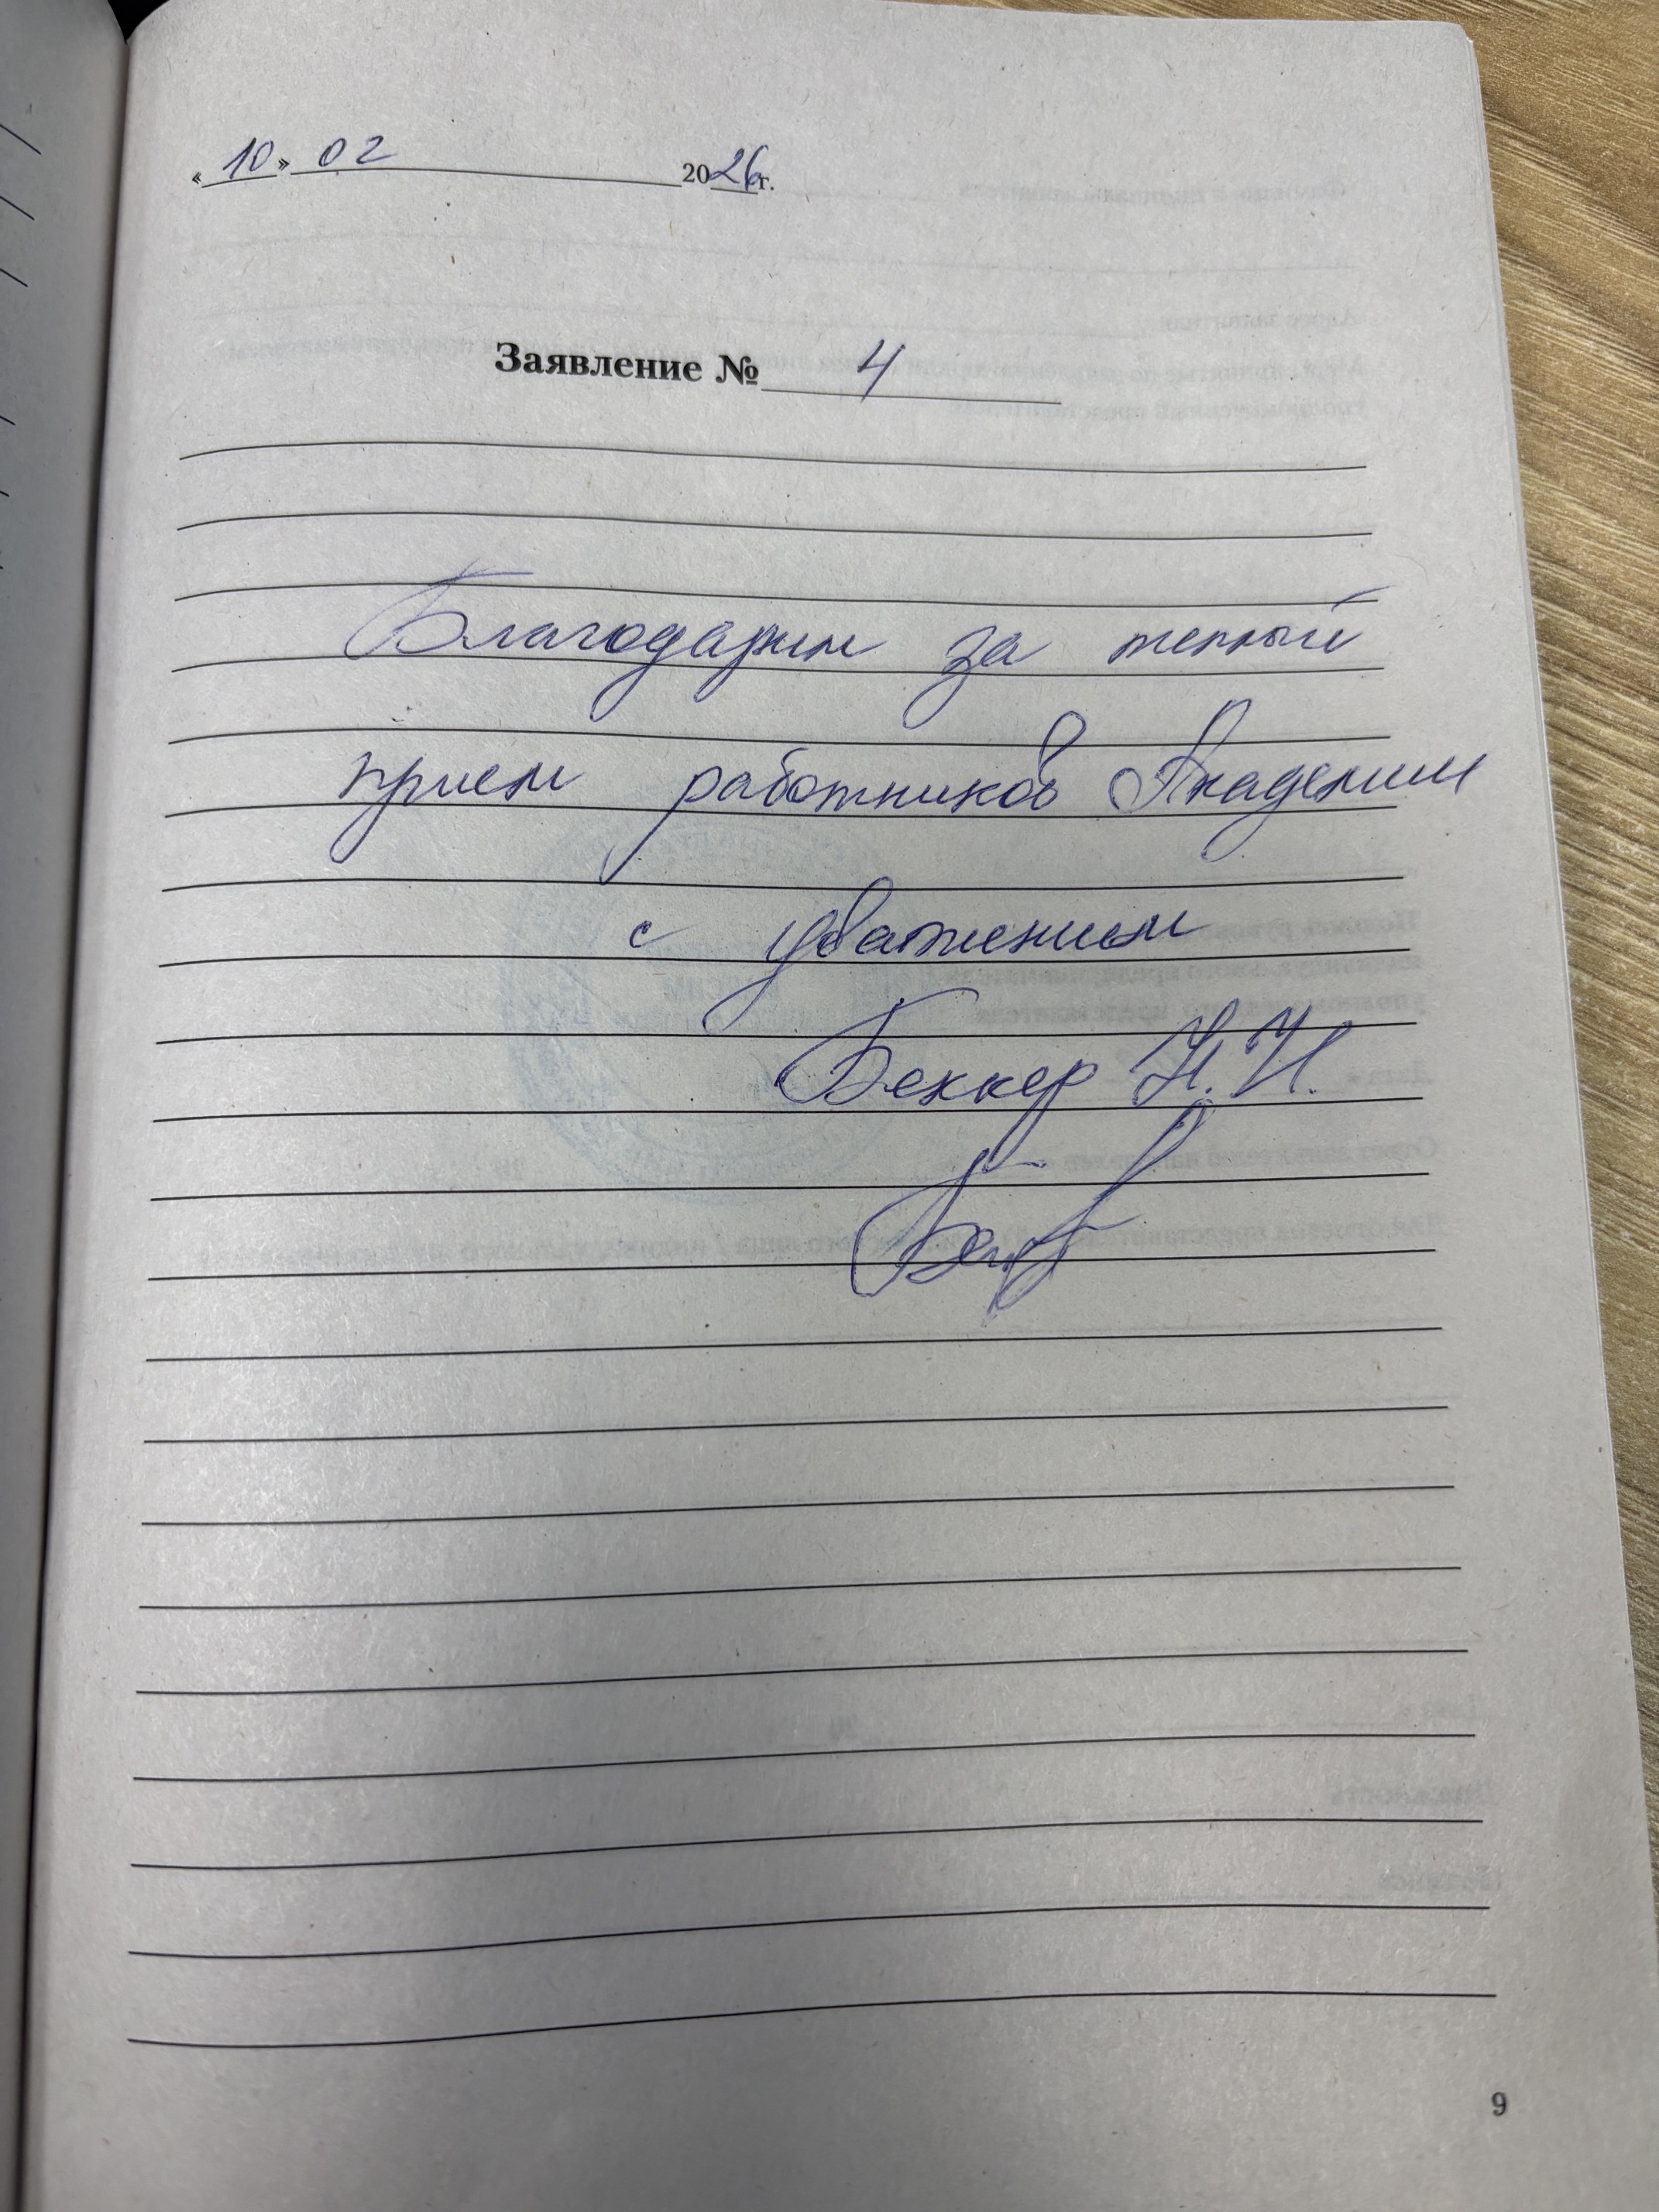 «10» 02 2026г.
Заявление № 4
Благодарим за теплый
прием работников Академии
с уважением
Беккер Н.И.
9